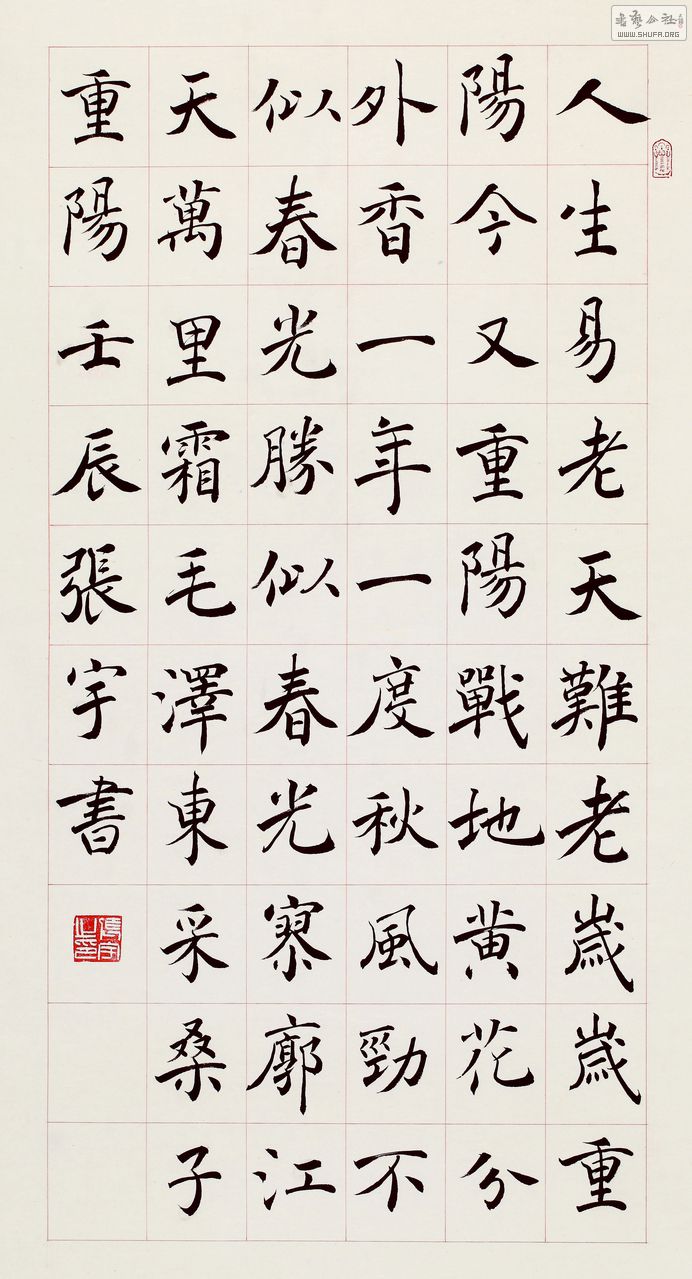 人生易老天難老歲歲重
陽今又重陽戰地黄花分
外香一年一度秋風勁不
似春光勝似春光寥廓江
天萬里霜毛澤東采桑子
重陽壬辰張宇書
張宇之印
書藝公社
WWW.SHUFA.ORG